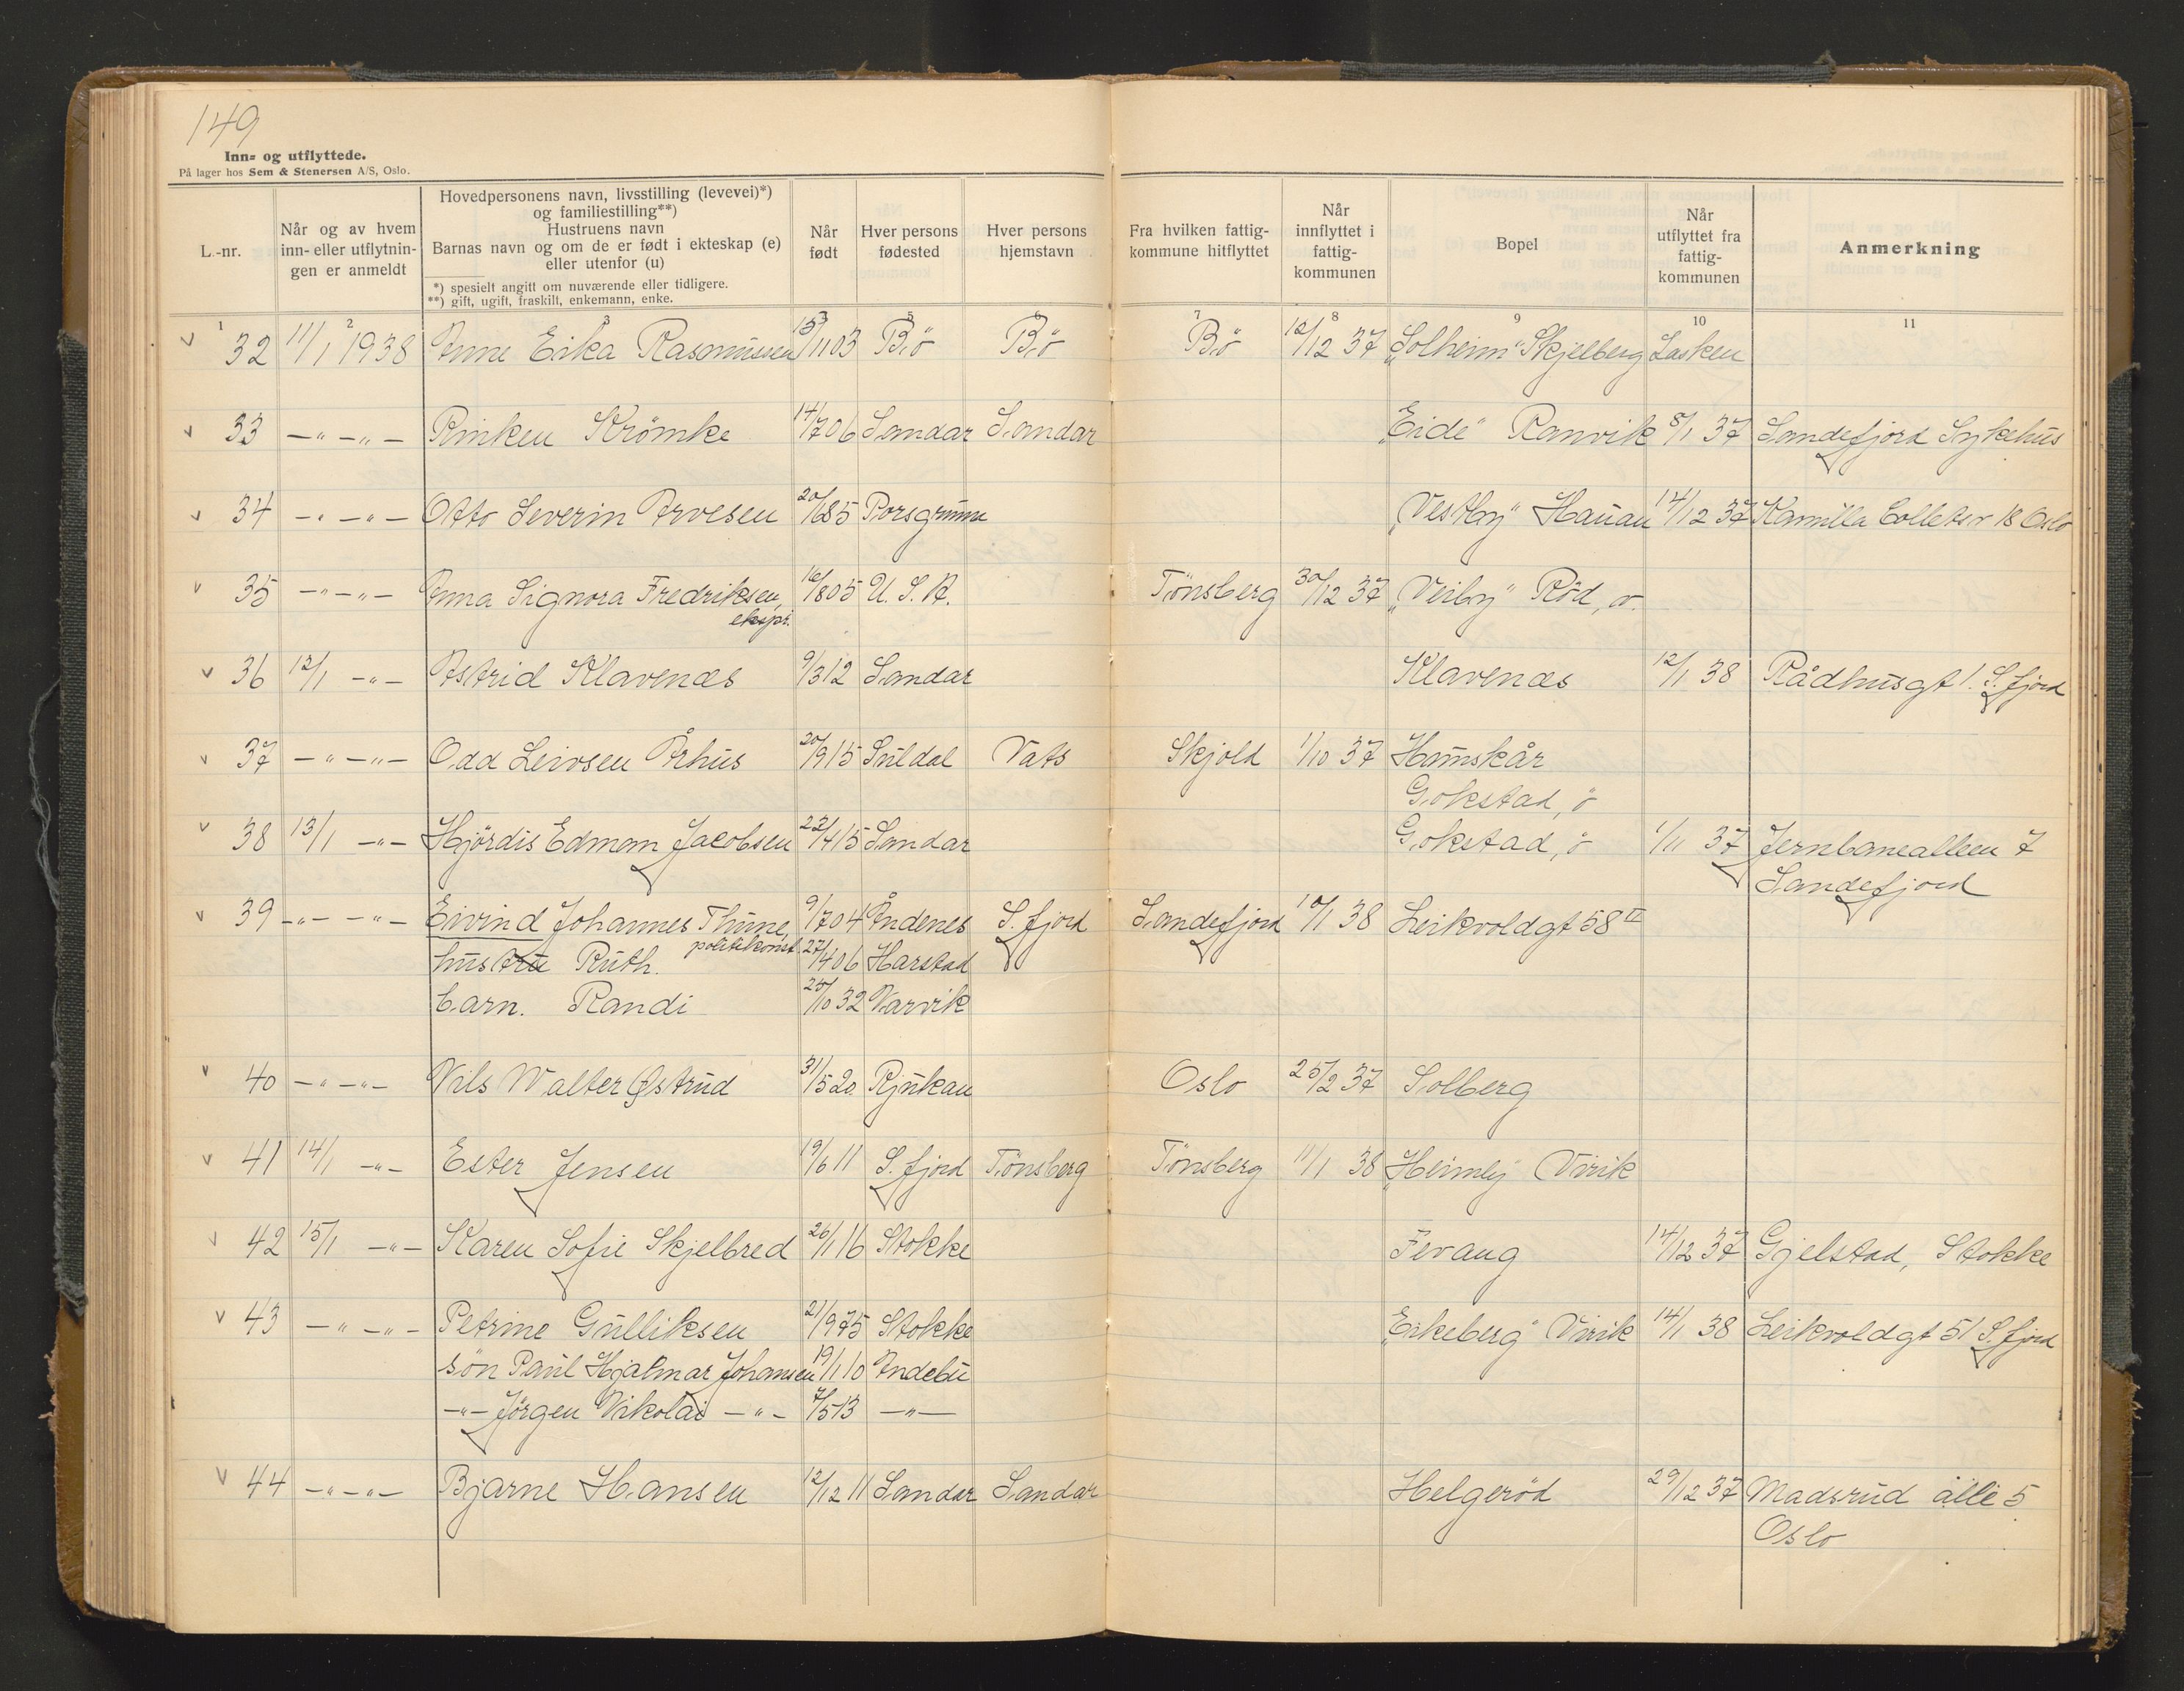 149
Inn- og utflyttede.
På lager hos Sem & Stenersen A/S, Oslo.
L.-nr. Når og av hvem inn- eller utflytnin- gen er anmeldt Hovedpersonens navn, livsstilling (levevei)*) og familiestilling**) Hustruens navn Barnas navn og om de er født i ekteskap (e) eller utenfor (u) *) spesielt angitt om nuværende eller tidligere. **) gift, ugift, fraskilt, enkemann, enke. Når født Hver persons fødested Hver persons hjemstavn Fra hvilken fattig- kommune hitflyttet Når innflyttet i fattig- kommunen Bopel Når utflyttet fra fattig- kommunen Anmerkning
1 2 3 4 5 6 7 8 9 10 11
v 32 11/1 1938 Anne Erika Rasmussen 15/1 03 Bö Bö Bö 12/12 37 „Solheim" Skjelberg Lasken
v 33 -"-"- Rinken Krömke 14/7 06 Sandar Sandar „Eide" Ranvik 8/1 37 Sandefjord Sykehus
v 34 -"-"- Otto Severin Arvesen 20/6 85 Porsgrunn „Vestby" Hauan 14/12 37 Kamilla Colletsv 18 Oslo
v 35 -"-"- Anna Signora Fredriksen, 16/8 05 U.S.A. Tönsberg 30/12 37 „Veiby" Röd, v.
ekspr.
v 36 12/1 -"- Astrid Klavenæs 9/3 12 Sandar Klavenæs 12/1 38 Rådhusgt 1. S.fjord
v 37 -"-"- Odd Leivsen Århus 20/9 15 Suldal Vats Skjold 1/10 37 Haunskår
Gokstad, ö
v 38 13/1 -"- Hjördis Edmom Jacobsen 22/4 15 Sandar Gokstad, ö 1/11 37 Jernbanealleen 7
Sandefjord
v 39 -"- -"- Eivind Johannes Thune, 9/7 04 Åndenes S.fjord Sandefjord 10/1 38 Leikvoldgt 58 II
politikonst.
hustru Ruth. 27/4 06 Harstad
barn. Randi 25/10 32 Narvik
v 40 -"-"- Nils Walter Østrud 31/5 20. Rjukan Oslo 25/2 37 Solberg
v 41 14/1 -"- Ester Jensen 19/6 11 S.fjord Tönsberg Tönsberg 11/1 38 „Heimly" Virik
v 42 15/1 -"- Karen Sofie Skjelbred 26/1 16 Stokke Fevang 14/12 37 Gjelstad, Stokke
v 43 -"-"- Petrine Gulliksen 21/9 75 Stokke „Eikeberg" Virik 14/1 38 Leikvoldgt 51 S.fjord
sön Paul Hjalmar Johansen 19/1 10 Andebu
-"- Jörgen Nikolai -"- 7/5 13 -"-
v 44 -"-"- Bjarne Hansen 12/12 11 Sandar Sandar Helgeröd 29/12 37 Madsrud allé 5
Oslo